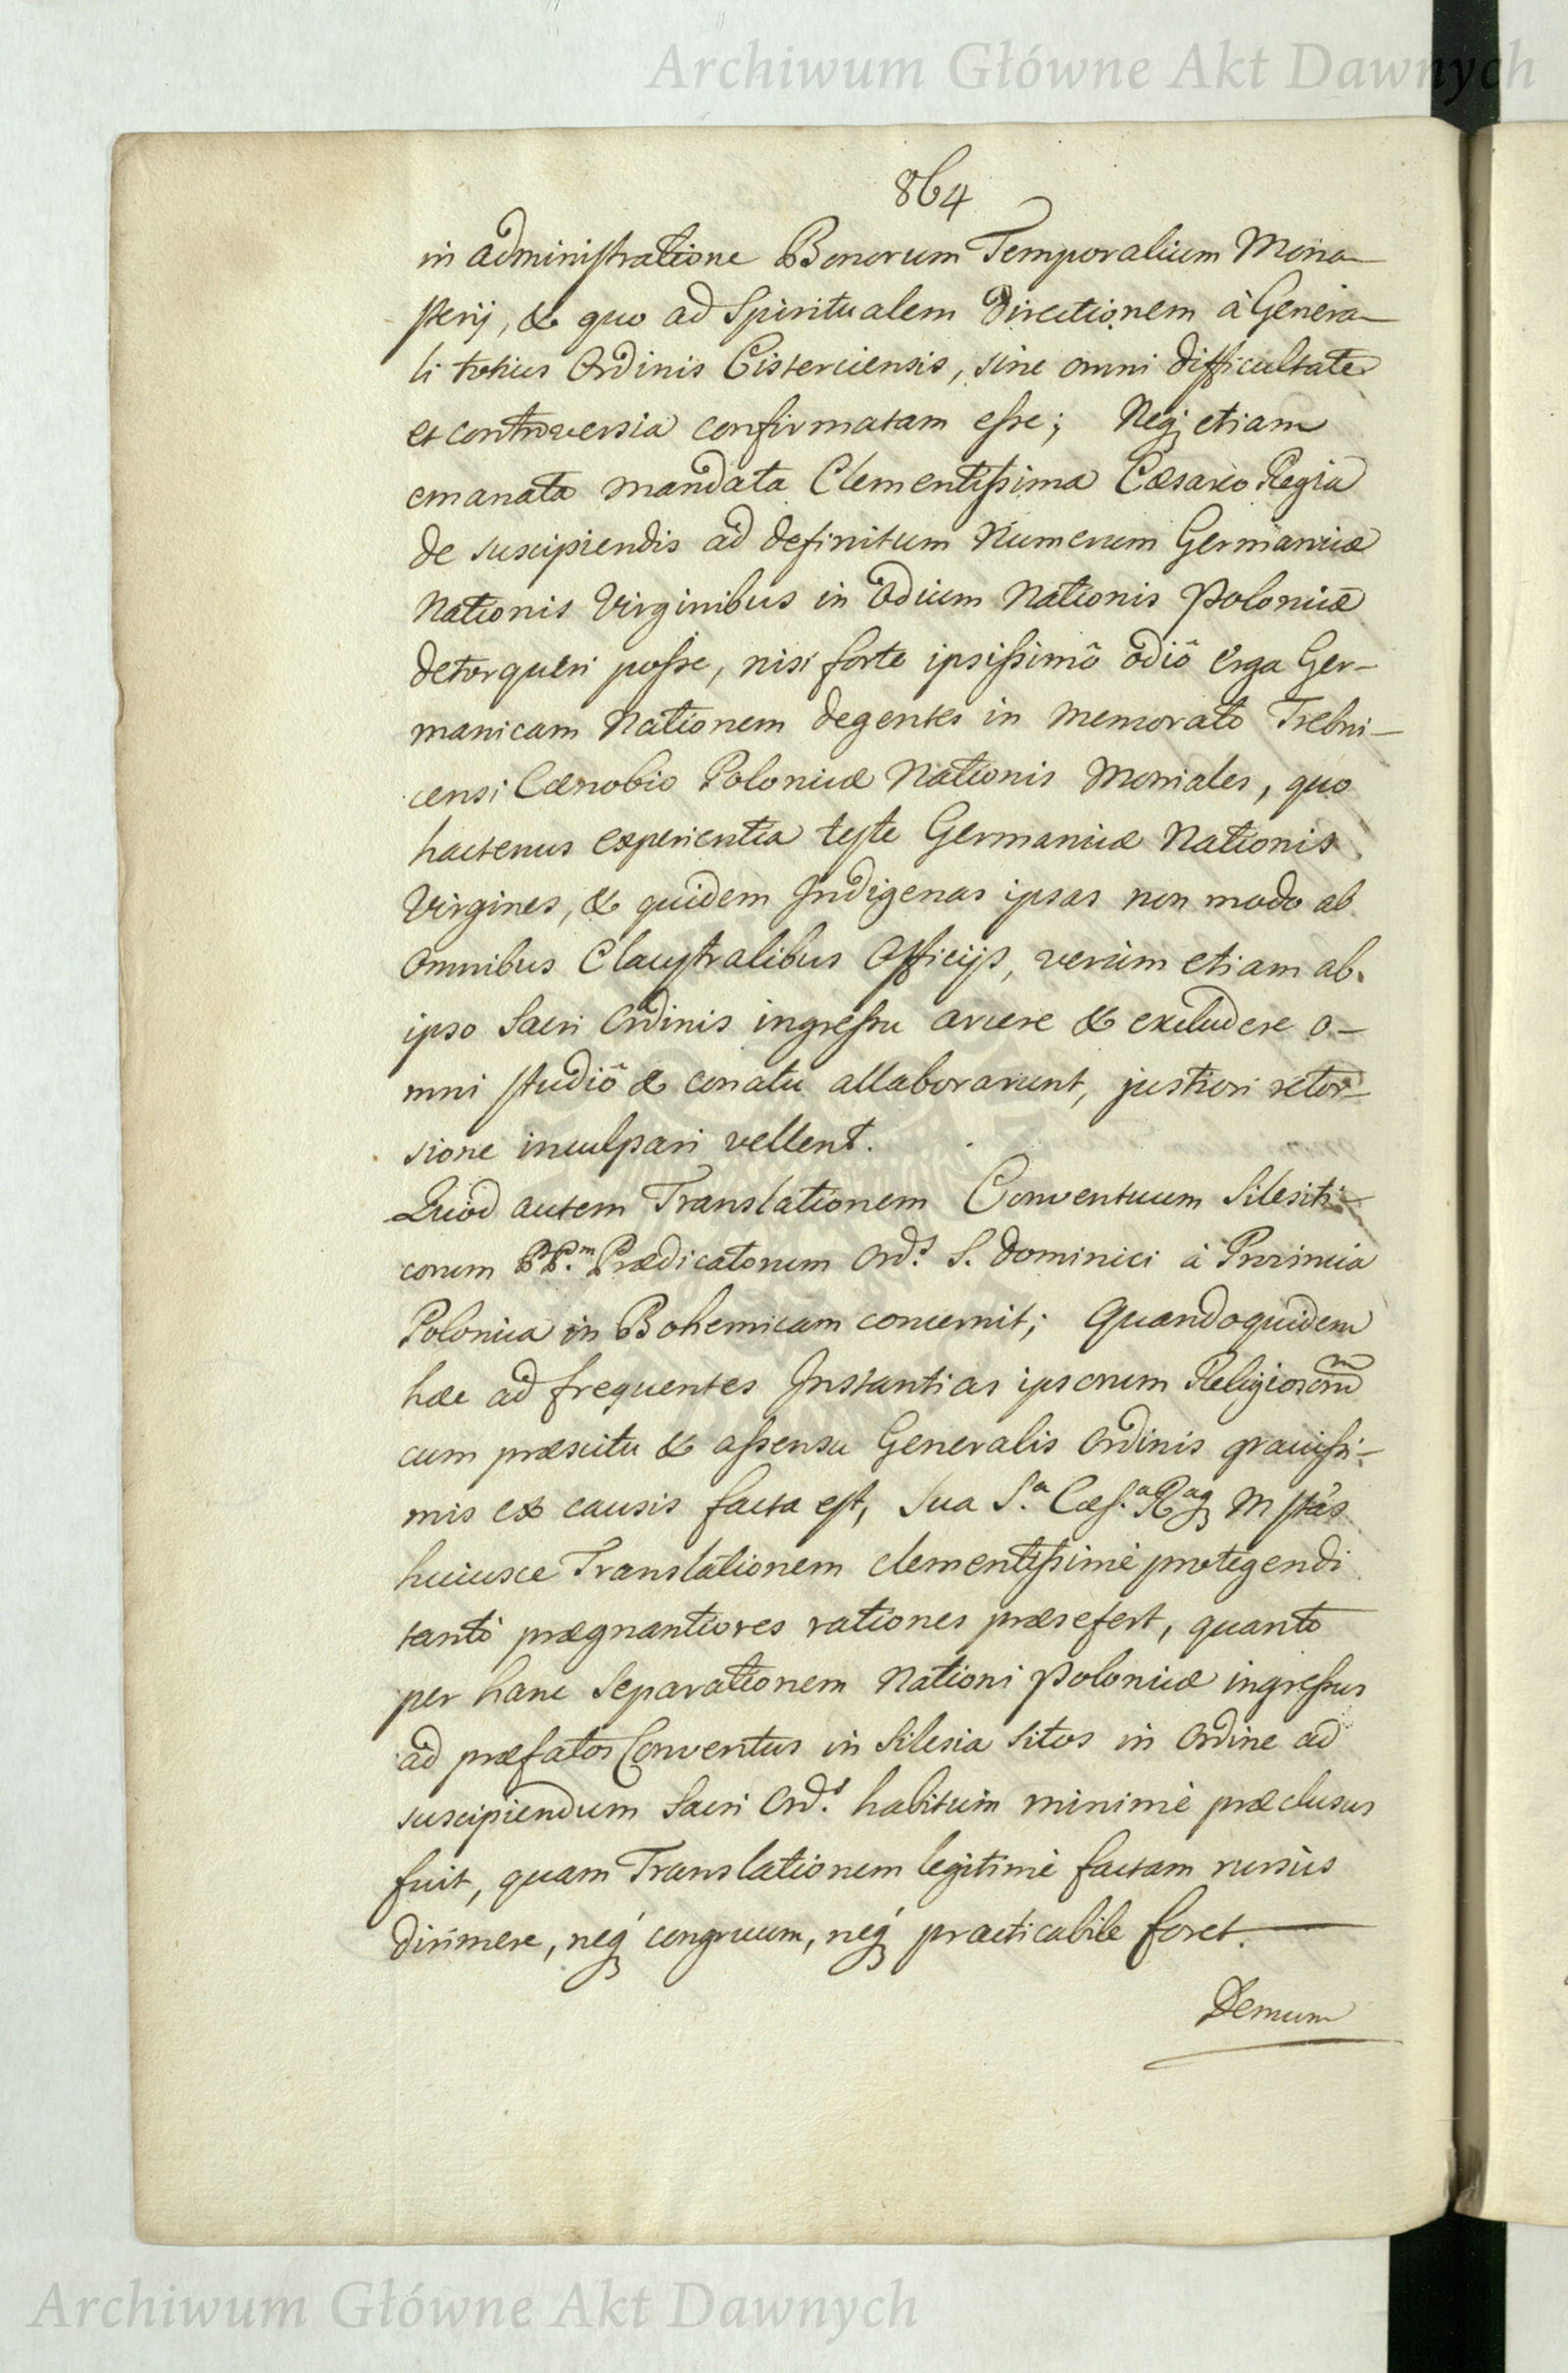 Archiwum Główne Akt Dawnych
864
in administratione Bonorum Temporalium Mona-
sterij, & quo ad Spiritualem Directionem à Genera-
li totius Ordinis Cisterciensis, sine omni difficultate
et controversia confirmatam esse; Neq; etiam
emanata mandata Clementissima Cæsareo Regia
de suscipiendis ad definitum Numerum Germanicæ
Nationis Virginibus in Odium Nationis Polonicæ
detorqueri posse, nisi forte ipsissimô odiô erga Ger-
manicam Nationem degentes in memorato Trebni-
censi Cænobio Polonicæ Nationis Moniales, quo
hactenus experientia teste Germanicæ Nationis
Virgines, & quidem Indigenas ipsas non modo ab
Omnibus Claustralibus Officijs, verùm etiam ab
ipso Sacri Ordinis ingressu arcere & excludere o-
mni studiô & conatu allaborarunt, justiori retor-
sione inculpari vellent.
Quod autem Translationem Conventuum Silesiti-
corum PP.m Prædicatorum Ord.s S. Dominici à Provincia
Polonica in Bohemicam concernit; Quandoquidem
hæc ad frequentes Instantias ipsorum Religiosorum
cum præscitu & assensu Generalis Ordinis gravissi-
mis ex causis facta est, Sua S.a Cæs.a R.aq; Mstas
huiusce Translationem clementissimè protegendi
tantò prægnantiores rationes præsefert, quanto
per hanc Separationem Nationi Polonicæ ingressus
ad præfatos Conventus in Silesia sitos in Ordine ad
suscipiendum Sacri Ord.s habitum minimè præclusus
fuit, quam Translationem legitimè factam rursùs
dirimere, neq; congruum, neq; practicabile foret.
Demum
Archiwum Główne Akt Dawnych